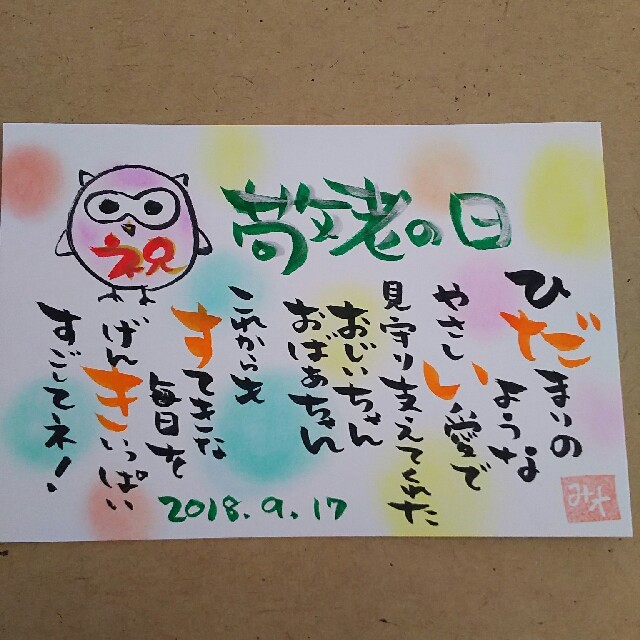 敬老の日
祝
ひだまりの
ような
やさしい愛で
見守り支えてくれた
おじいちゃん
おばあちゃん
これからも
すてきな
毎日を
げんきいっぱい
すごしてネ!
2018.9.17